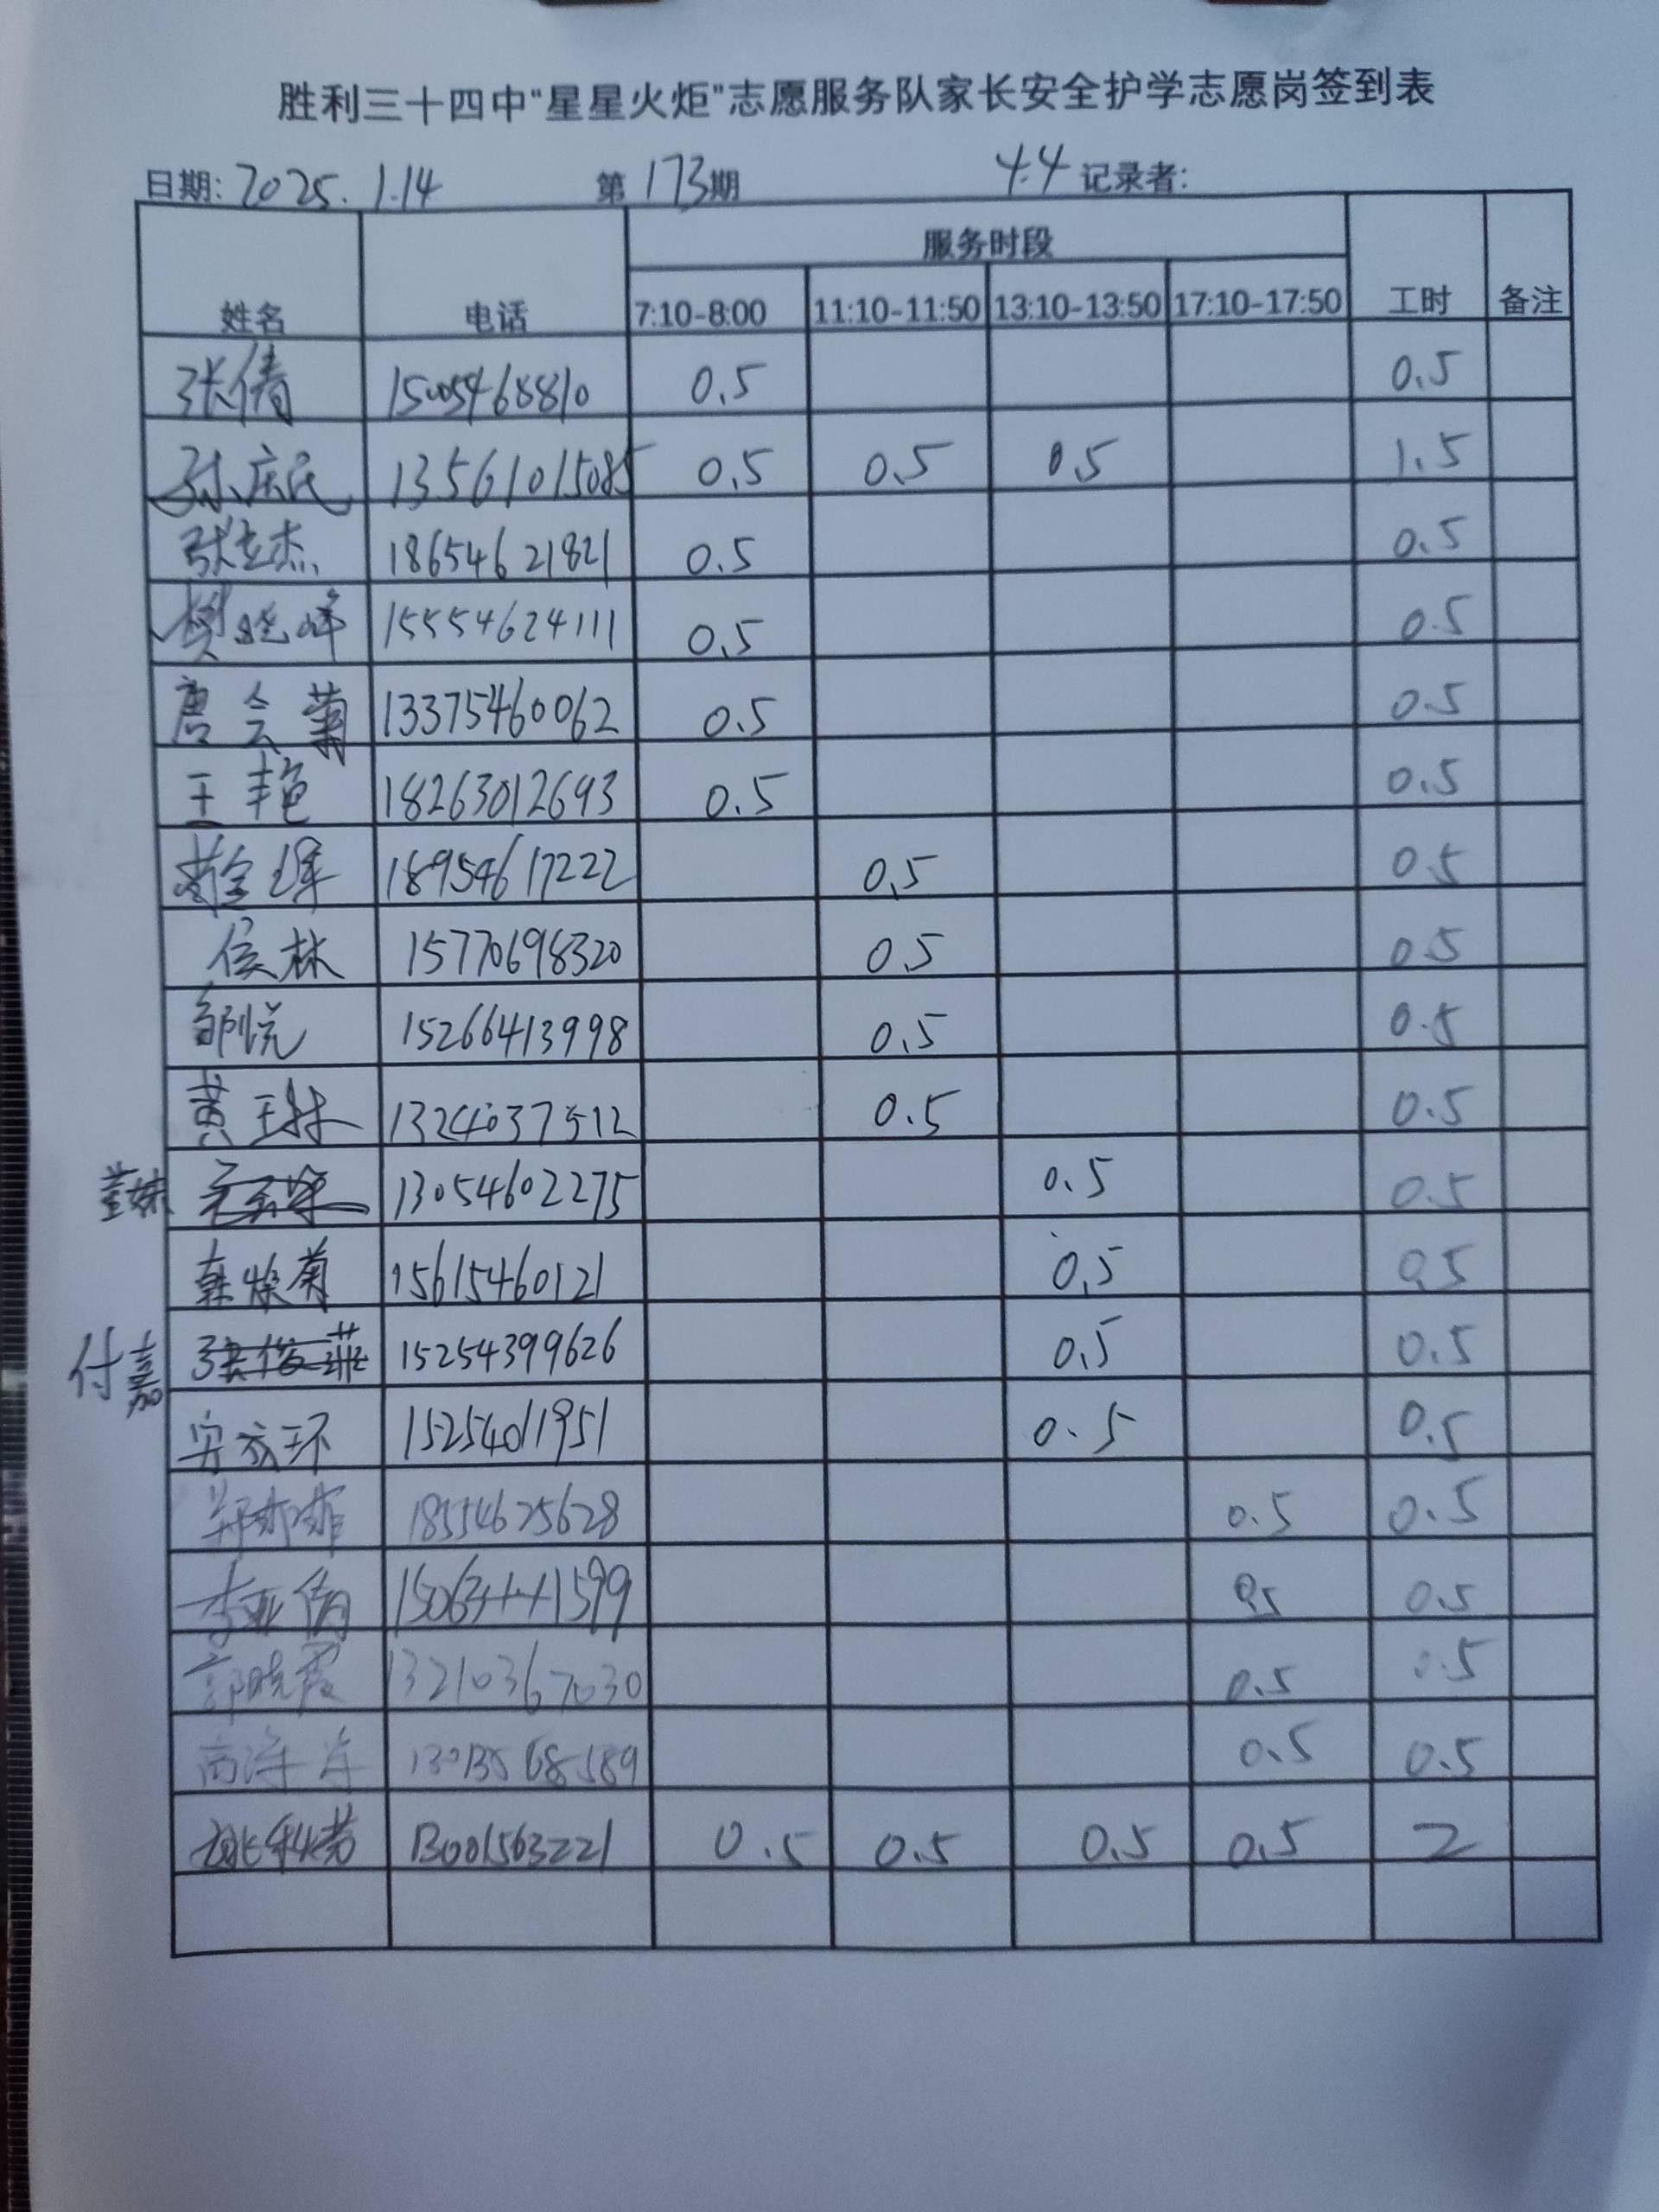 胜利三十四中“星星火炬”志愿服务队家长安全护学志愿岗签到表
日期: 2025.1.14 第173期 4.4 记录者:
姓名 电话 服务时段 工时 备注
7:10-8:00 11:10-11:50 13:10-13:50 17:10-17:50
张倩 15005468810 0.5 0.5
孙庆民 13561015085 0.5 0.5 0.5 1.5
张立杰 18654621821 0.5 0.5
樊晓峰 15554624111 0.5 0.5
唐会菊 13375460062 0.5 0.5
王艳 18263012693 0.5 0.5
18954617222 0.5 0.5
侯林 15770698320 0.5 0.5
邹悦 15266413998 0.5 0.5
黄玉林 1324037512 0.5 0.5
董妹 13054602275 0.5 0.5
韩焕菊 15615460121 0.5 0.5
付嘉 张俊菲 15254399626 0.5 0.5
安方环 15254011951 0.5 0.5
18554625628 0.5 0.5
李亚倩 0.5 0.5
郭晓霞 13210367030 0.5 0.5
高 0.5 0.5
姚利芳 13001563221 0.5 0.5 0.5 0.5 2